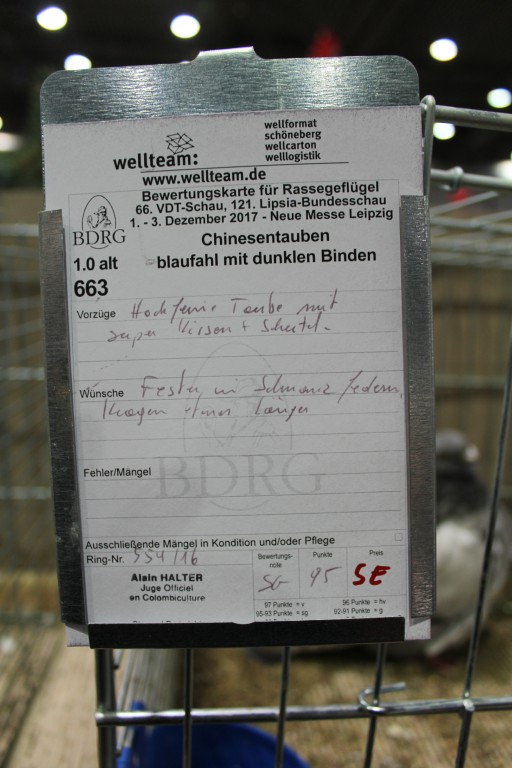 wellteam:
wellformat
schöneberg
wellcarton
welllogistik
www.wellteam.de
Bewertungskarte für Rassegeflügel
66. VDT-Schau, 121. Lipsia-Bundesschau
1. - 3. Dezember 2017 - Neue Messe Leipzig
BDRG
Chinesentauben
1.0 alt blaufahl mit dunklen Binden
663
Vorzüge Hochfeine Taube mit
super Kissen +
Wünsche Fester in Schwanzfedern,
Kragen etwas länger
BDRG
Fehler/Mängel
Ausschließende Mängel in Kondition und/oder Pflege
Ring-Nr. 554/16
Bewertungs-
note
Punkte
Preis
SG 95 SE
Alain HALTER
Juge Officiel
en Colombiculture
97 Punkte = v 96 Punkte = hv
95-93 Punkte = sg 92-91 Punkte = g